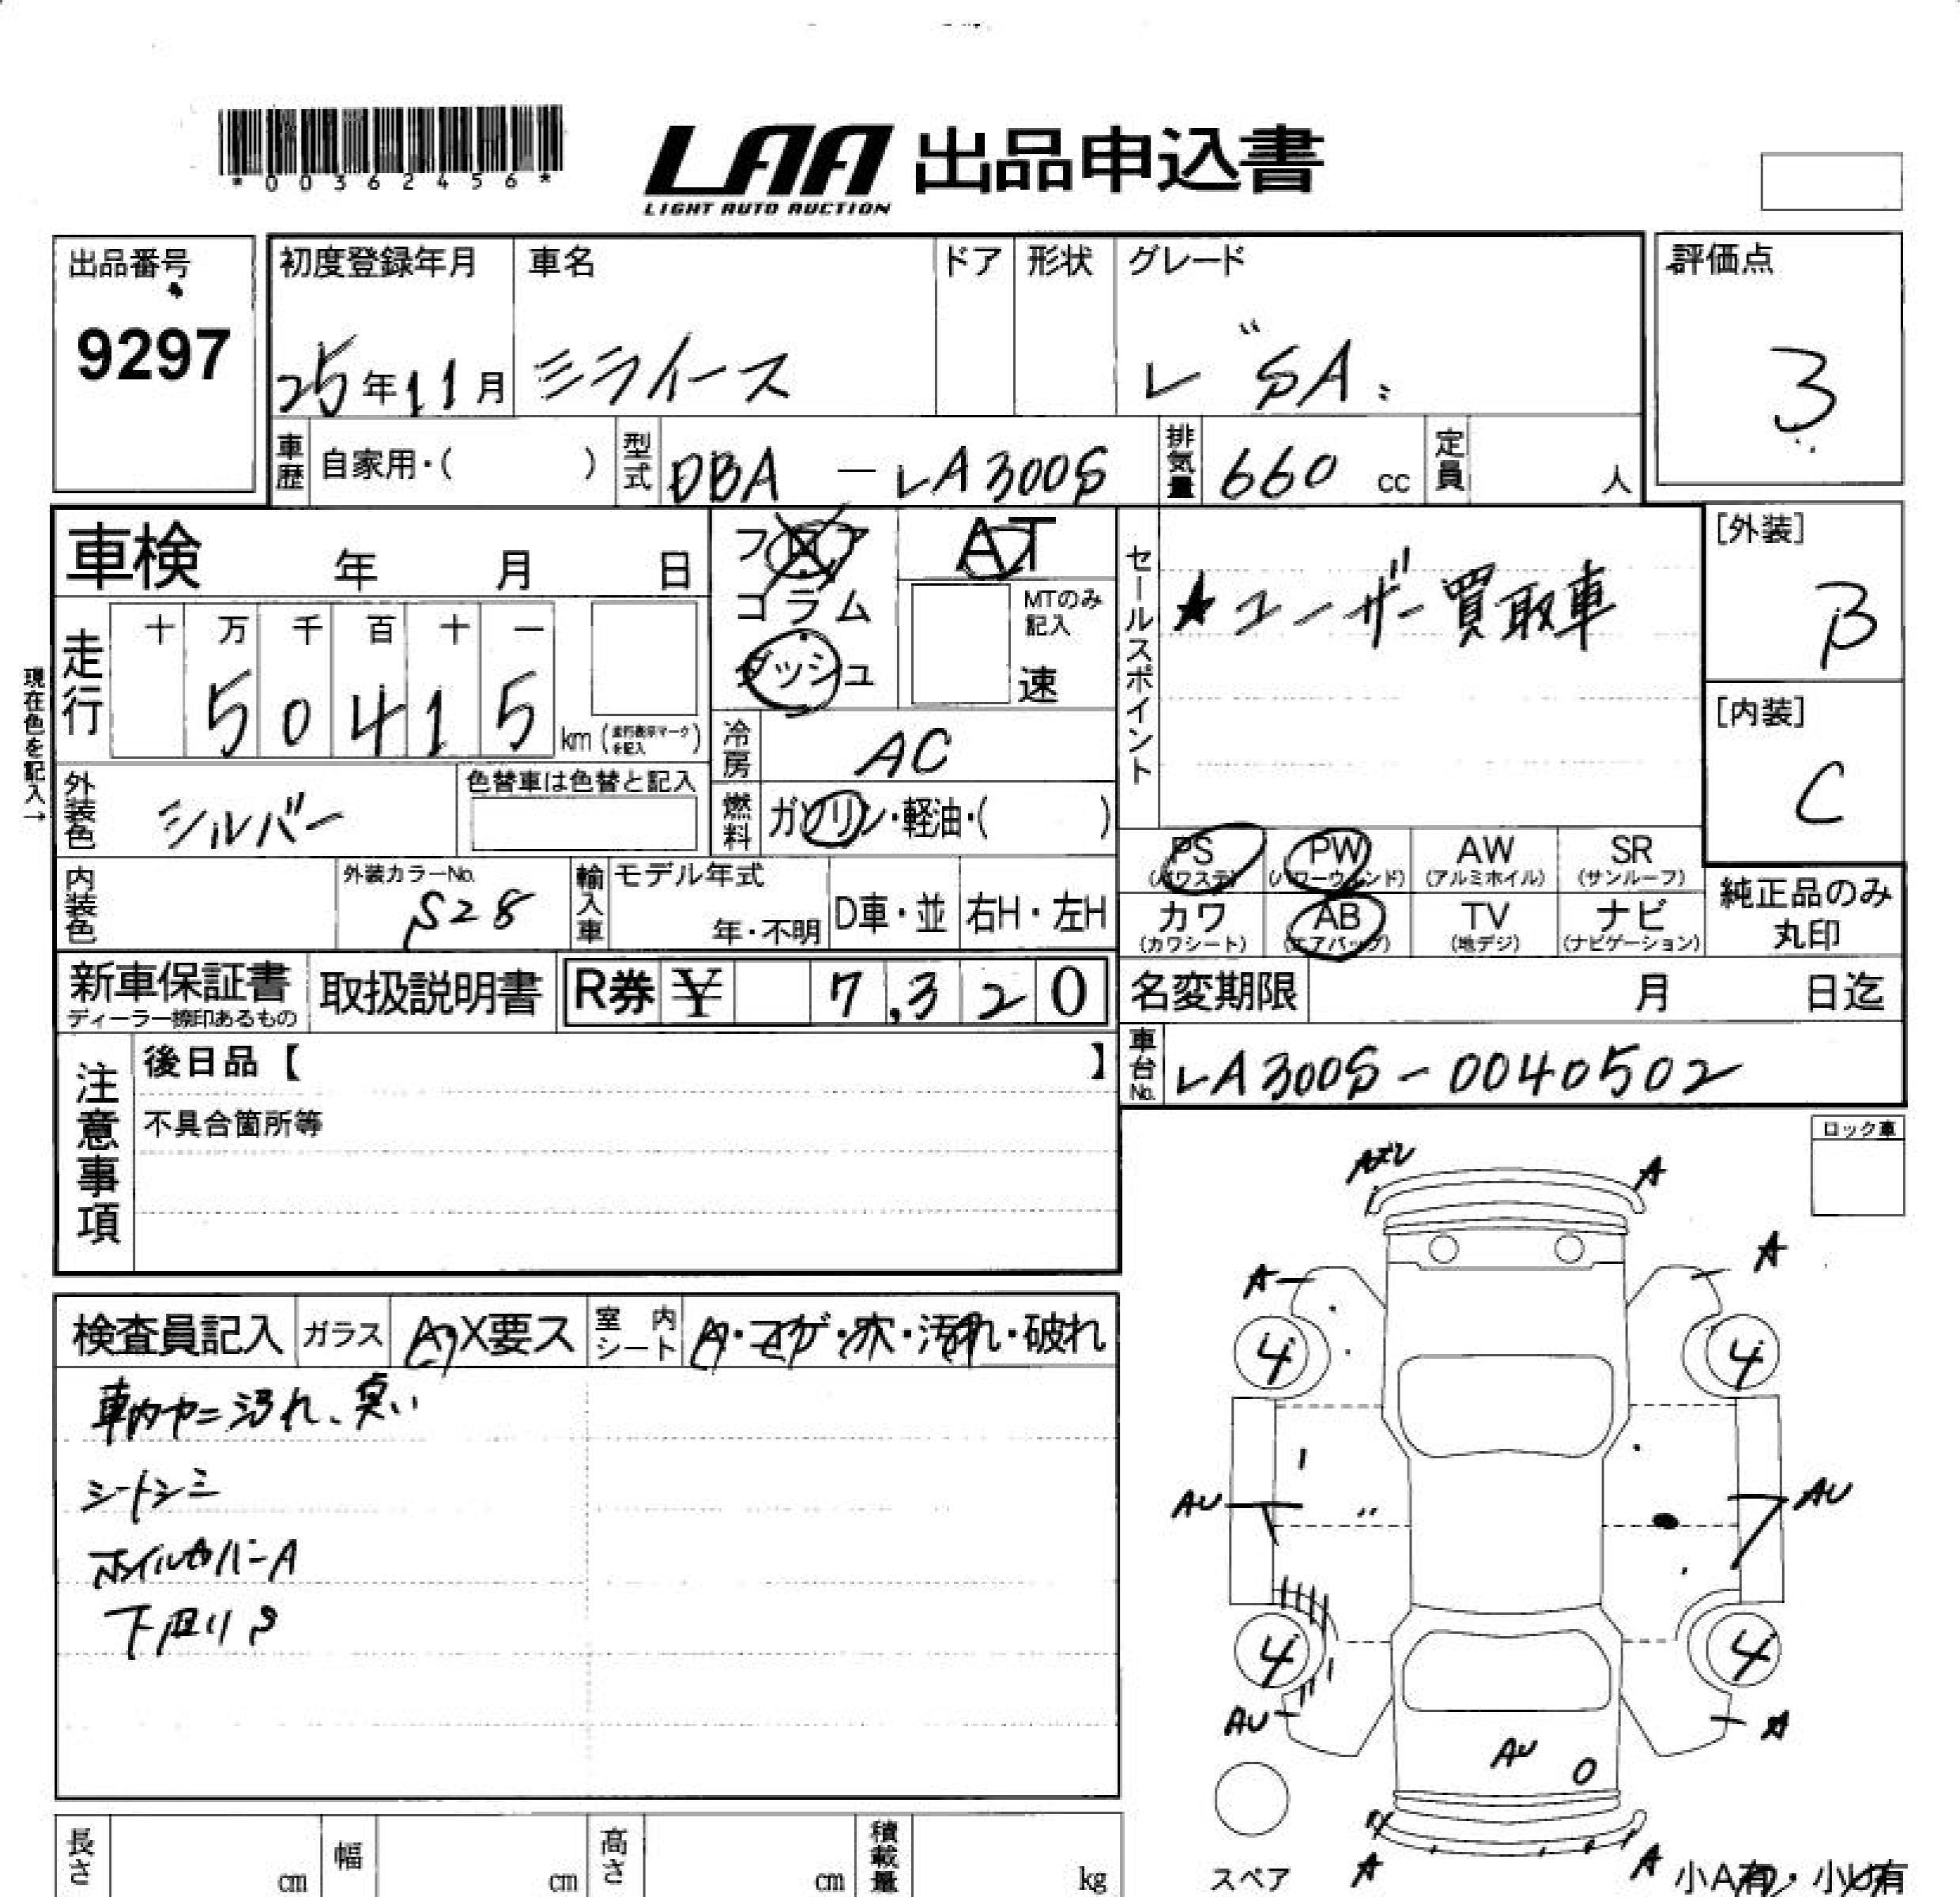 *00362456*
LAA 出品申込書
LIGHT AUTO AUCTION
出品番号
9297
初度登録年月
25年11月
車名
ミライース
ドア
形状
グレード
レ"SA.
評価点
3
車歴
自家用・( )
型式
DBA - LA300S
排気量
660 cc
定員
人
車検 年 月 日
フロア
コラム
ダッシュ
AT
MTのみ記入
速
セールスポイント
★ユーザー買取車
[外装]
B
[内装]
C
現在色を記入→
走行
十 万 千 百 十 一
5 0 4 1 5
km (走行表示マークを記入)
冷房
AC
外装色
シルバー
色替車は色替と記入
燃料
ガソリン・軽油・( )
内装色
外装カラーNo.
S28
輸入車
モデル年式
年・不明
D車・並
右H・左H
PS (パワステ)
PW (パワーウィンド)
AW (アルミホイル)
SR (サンルーフ)
カワ (カワシート)
AB (エアバッグ)
TV (地デジ)
ナビ (ナビゲーション)
純正品のみ丸印
新車保証書
ディーラー捺印あるもの
取扱説明書
R券 ¥ 7,320
名変期限 月 日迄
注意事項
後日品【 】
不具合箇所等
車台No.
LA300S-0040502
ロック車
検査員記入
ガラス
A・X要ス
室内シート
A・コゲ・穴・汚れ・破れ
車内ヤニ汚れ、臭い
シートシミ
ホイルカバーA
下回りS
A
A
A
4
4
AU
AU
4
4
AU
A
AU
A
A
スペア
小A有・小U有
長さ
cm
幅
cm
高さ
cm
積載量
kg